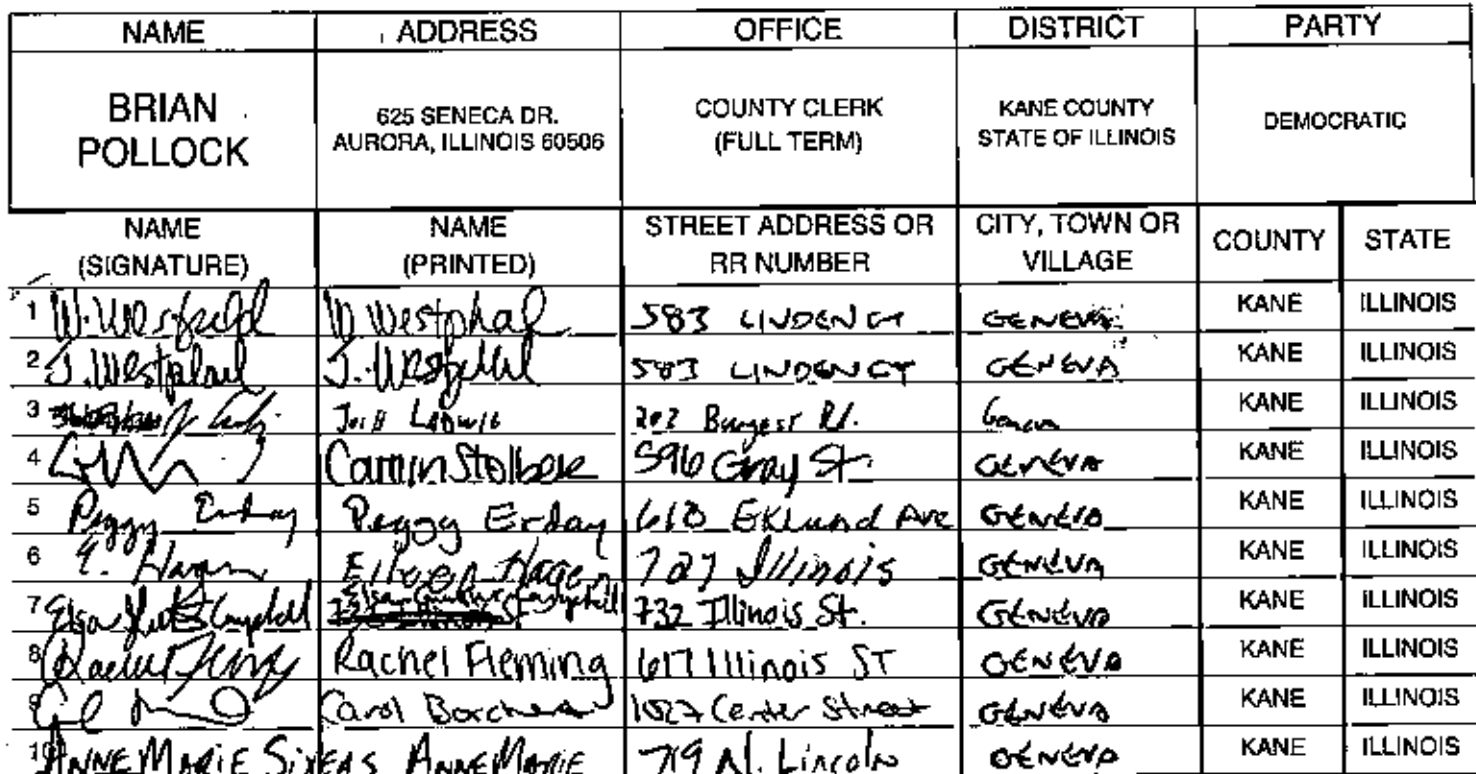 NAME ADDRESS OFFICE DISTRICT PARTY
BRIAN POLLOCK 625 SENECA DR. AURORA, ILLINOIS 60506 COUNTY CLERK (FULL TERM) KANE COUNTY STATE OF ILLINOIS DEMOCRATIC
NAME (SIGNATURE) NAME (PRINTED) STREET ADDRESS OR RR NUMBER CITY, TOWN OR VILLAGE COUNTY STATE
1 W. W Westphal 583 LINDEN CT GENEVA KANE ILLINOIS
2 J. Westphal J. Westphal 583 LINDEN CT GENEVA KANE ILLINOIS
3 202 Rd. KANE ILLINOIS
4 596 Gray St. GENEVA KANE ILLINOIS
5 Peggy Erday Peggy Erday 610 Eklund Ave GENEVA KANE ILLINOIS
6 E. Hagen Eileen Hagen 727 Illinois GENEVA KANE ILLINOIS
7 Campbell 732 Illinois St. GENEVA KANE ILLINOIS
8 Rachel Fleming Rachel Fleming 617 Illinois ST GENEVA KANE ILLINOIS
9 Carol 1027 Center Street GENEVA KANE ILLINOIS
10 ANNEMARIE ANNEMARIE 719 N. Lincoln GENEVA KANE ILLINOIS